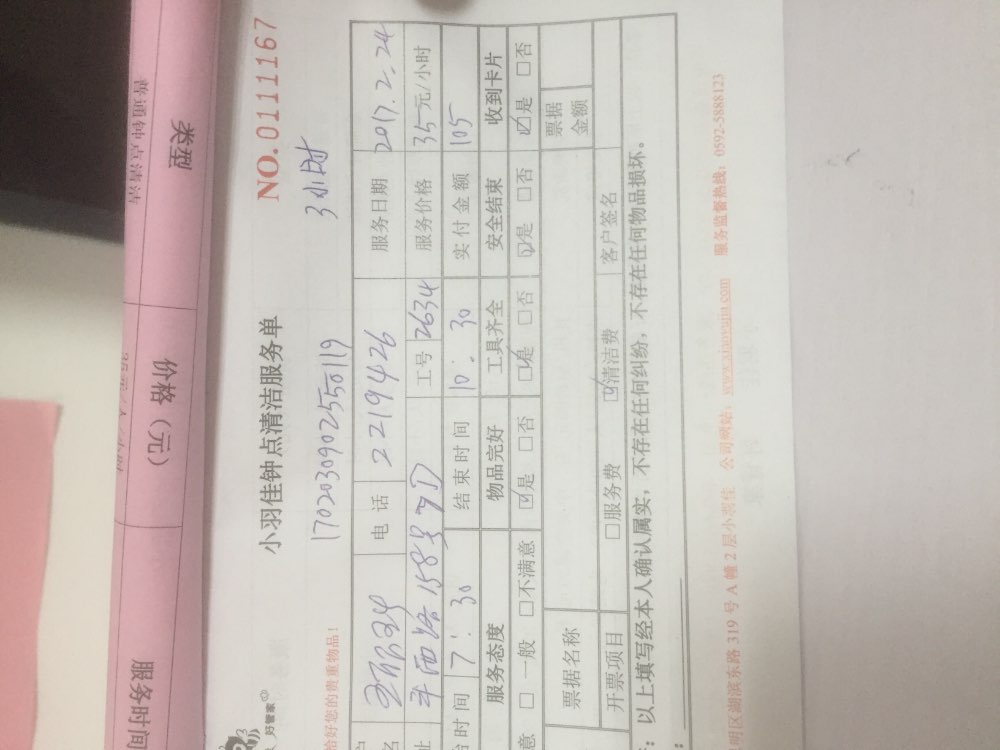 类型 价格（元） 服务时间
普通钟点清洁
好管家
小羽佳钟点清洁服务单 NO.0111167
17020309025550119 3小时
恰好您的贵重物品！
电话 2219426 服务日期 2017.2.24
西路158号 工号 2634 服务价格 35元/小时
时间 7:30 结束时间 10:30 实付金额 105
服务态度 物品完好 工具齐全 安全结束 收到卡片
意 □一般 □不满意 ☑是 □否 ☑是 □否 ☑是 □否 ☑是 □否
票据名称 票据金额
开票项目 □服务费 ☑清洁费 客户签名
：以上填写经本人确认属实，不存在任何纠纷，不存在任何物品损坏。
明区湖滨东路319号A幢2层小羽佳 公司网站：www.xiaoyujia.com 服务监督热线：0592-5888123